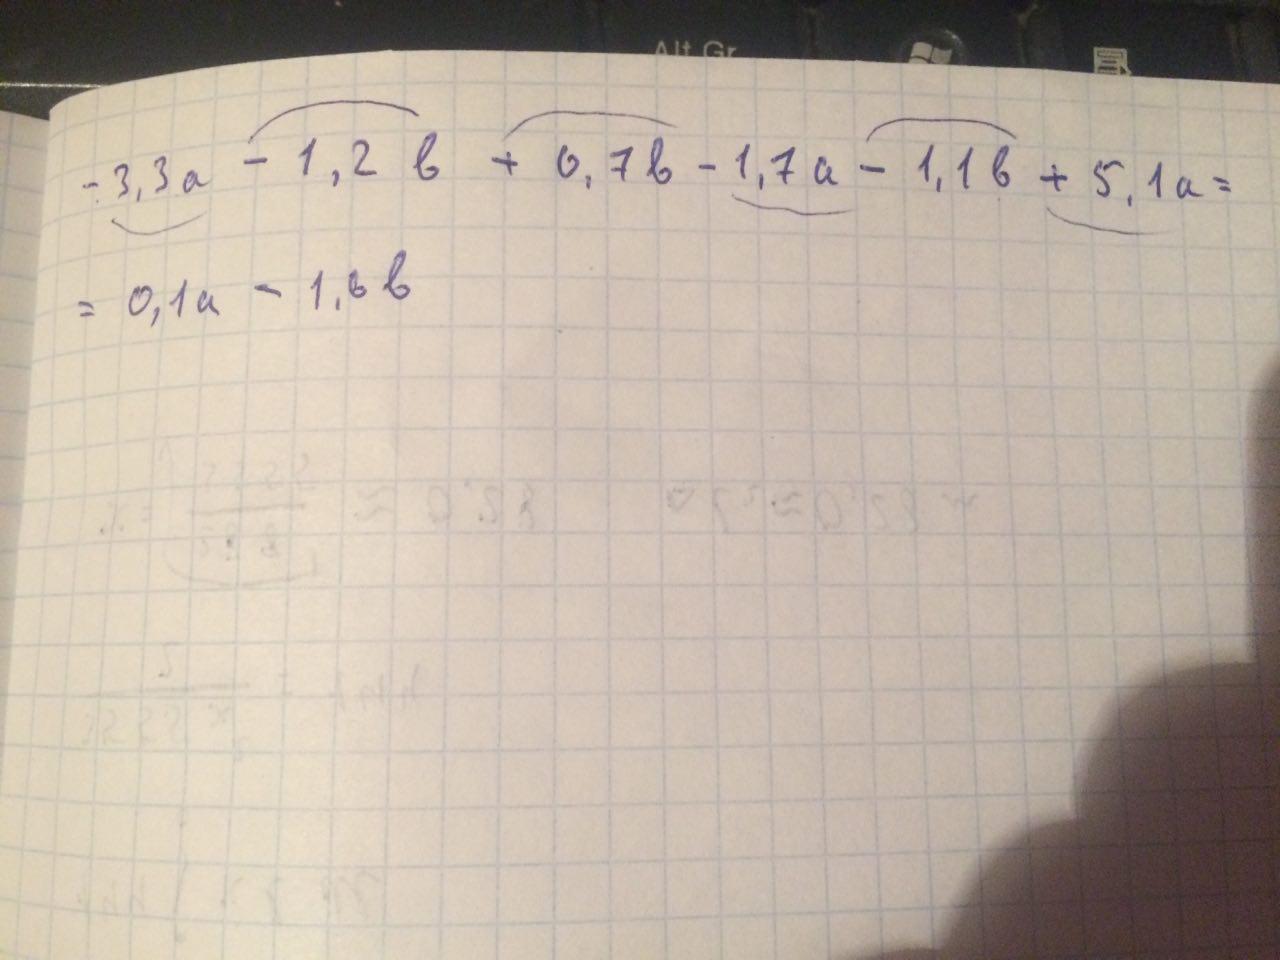 Alt Gr
-3,3a - 1,2b + 0,7b - 1,7a - 1,1b + 5,1a =
= 0,1a - 1,6b